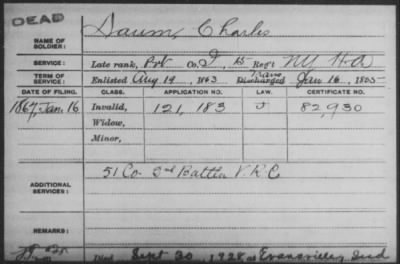 DEAD
NAME OF SOLDIER: Daum, Charles
SERVICE: Late rank, Pvt Co. I, 15 Reg't NY H A
TERM OF SERVICE: Enlisted Aug 19, 1863 Trans Discharged Jan 16, 1865
DATE OF FILING. CLASS. APPLICATION NO. LAW. CERTIFICATE NO.
1867, Jan. 16 Invalid, 121,183 82,930
Widow,
Minor,
ADDITIONAL SERVICES: 51 Co 2nd Battln V.R.C.
REMARKS:
Died Sept 20, 1928 at Evansville, Ind